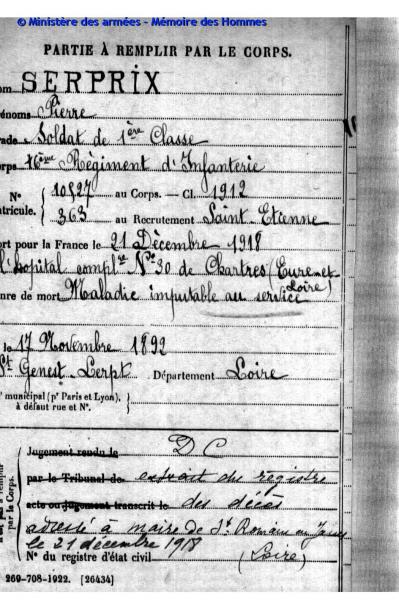 © Ministère des armées - Mémoire des Hommes
PARTIE À REMPLIR PAR LE CORPS.
om SERPRIX
énoms Pierre
rade Soldat de 1ère Classe
orps 16ème Règiment d'Infanterie
N° 10827 au Corps. — Cl. 1912
atricule. 363 au Recrutement Saint Etienne
ort pour la France le 21 Dècembre 1918
l'hopital complre N° 30 de Chartres (Eure-et-
Loire)
nre de mort Maladie imputable au service
le 17 Novembre 1892
St Genest-Lerpt Département Loire
municipal (pr Paris et Lyon),
à défaut rue et N°.
Jugement rendu le D C
par le Tribunal de extrait du registre
acte ou jugement transcrit le des décès
adressé à maire de St Romain en
le 21 décembre 1918
N° du registre d'état civil (Loire)
par le Corps.
269-708-1922. [26434]